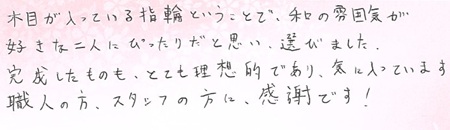 木目が入っている指輪ということで、和の雰囲気が
好きな二人にぴったりだと思い、選びました。
完成したものも、とても理想的であり、気に入っています
職人の方、スタッフの方に、感謝です！